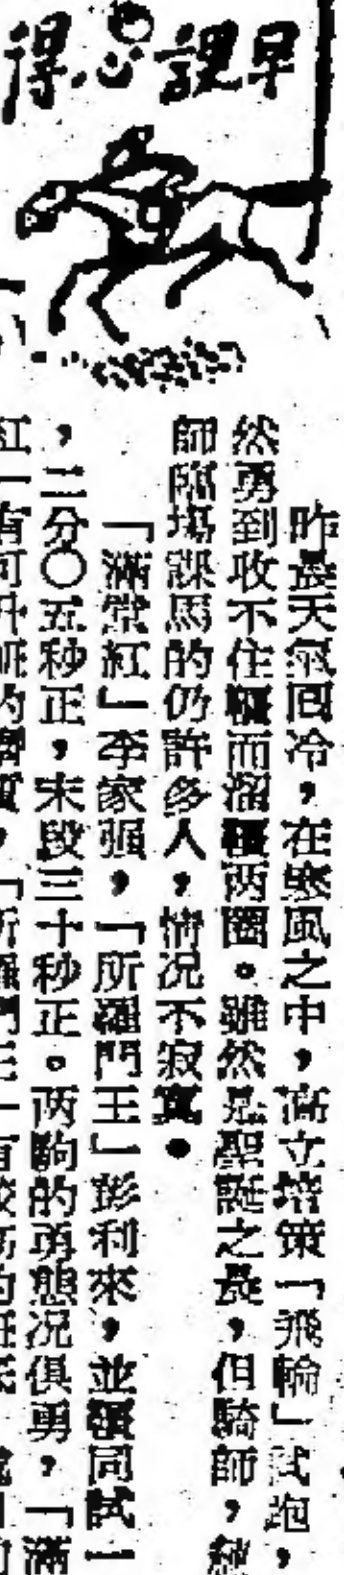 早課心得
昨晨天氣回冷,在寒風之中,高立培策「飛輪」試跑,
然勇到收不住韁而溜韁两圈。雖然是聖誕之晨,但騎師,練
師臨場課馬的仍許多人,情况不寂寞。
「滿堂紅」李家强,「所羅門王」彭利來,並轡同試一
,二分〇五秒正,末段三十秒正。两駒的勇態况俱勇,「滿
紅」有可升班的潛質,「所羅門王」有較高的班底